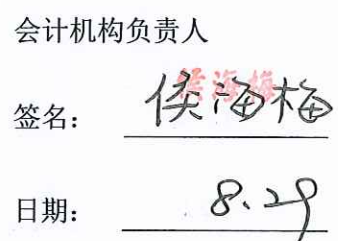 会计机构负责人
签名：侯海梅
侯海梅
日期：8.29